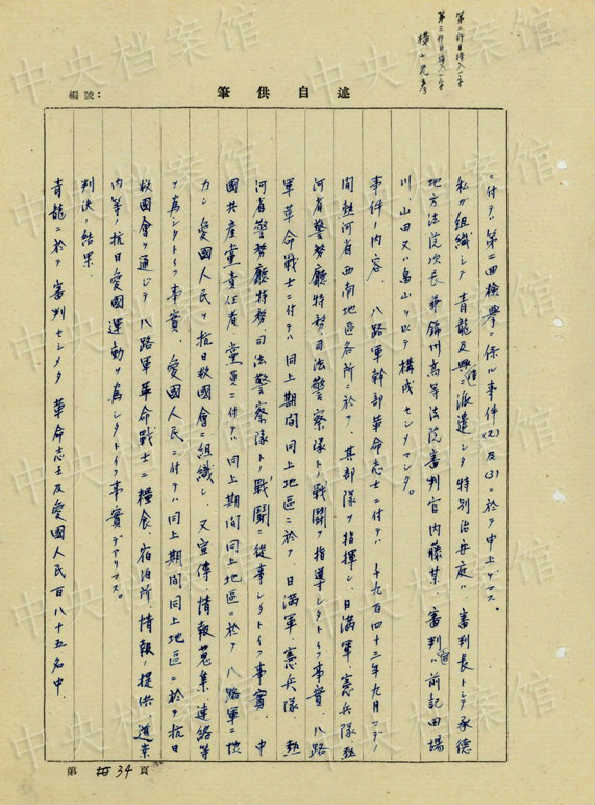 第二行目挿入一字
第三行目挿入一字
横山光彦
編號:
筆供自述
ニ付テハ第二回検挙ニ係ル事件(2)及(3)ニ於テ申上ゲマス。
私ガ組織シテ青龍及興隆ニ派遣シタ特別治安庭ハ審判長トシテ承徳
地方法院次長兼錦州高等法院審判官内藤某、審判官ハ前記田場
川、山田又ハ畠山ヲ以テ構成セシメマシタ。
事件ノ内容、八路軍幹部革命志士ニ付テハ千九百四十三年九月マデノ
間熱河省西南地區各所ニ於テ、其部隊ヲ指揮シ、日満軍、憲兵隊、熱
河省警務廳特務司法警察隊トノ戰闘ヲ指導シタトイフ事實、八路
軍革命戰士ニ付テハ同上期間同上地區ニ於テ、日満軍、憲兵隊、熱
河省警務廳特務、司法警察隊トノ戰闘ニ從事シタトイフ事實、中
國共産黨責任者、黨員ニ付テハ同上期間同上地區ニ於テ八路軍ニ協
力シ愛國人民ヲ抗日救國會ニ組織シ、又宣傳、情報蒐集、連絡等
ヲ為シタトイフ事實、愛國人民ニ付テハ同上期間同上地區ニ於テ抗日
救國會ヲ通ジテ八路軍革命戰士ニ糧食、宿泊所、情報ノ提供、道案
内等ノ抗日愛國運動ヲ為シタトイフ事實デアリマス。
判決ノ結果、
青龍ニ於テ審判セシメタ革命志士及愛國人民百八十五名中、
第 34 頁
中央档案馆